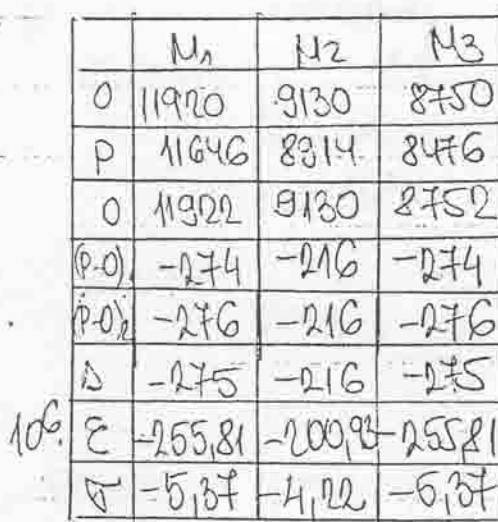 M1 M2 M3
O 11920 9130 8750
P 11646 8914 8476
O 11922 9130 8752
(P-O)1 -274 -216 -274
(P-O)2 -276 -216 -276
Δ -275 -216 -275
10⁶. ε -255,81 -200,93 -255,81
σ -5,37 -4,22 -5,37